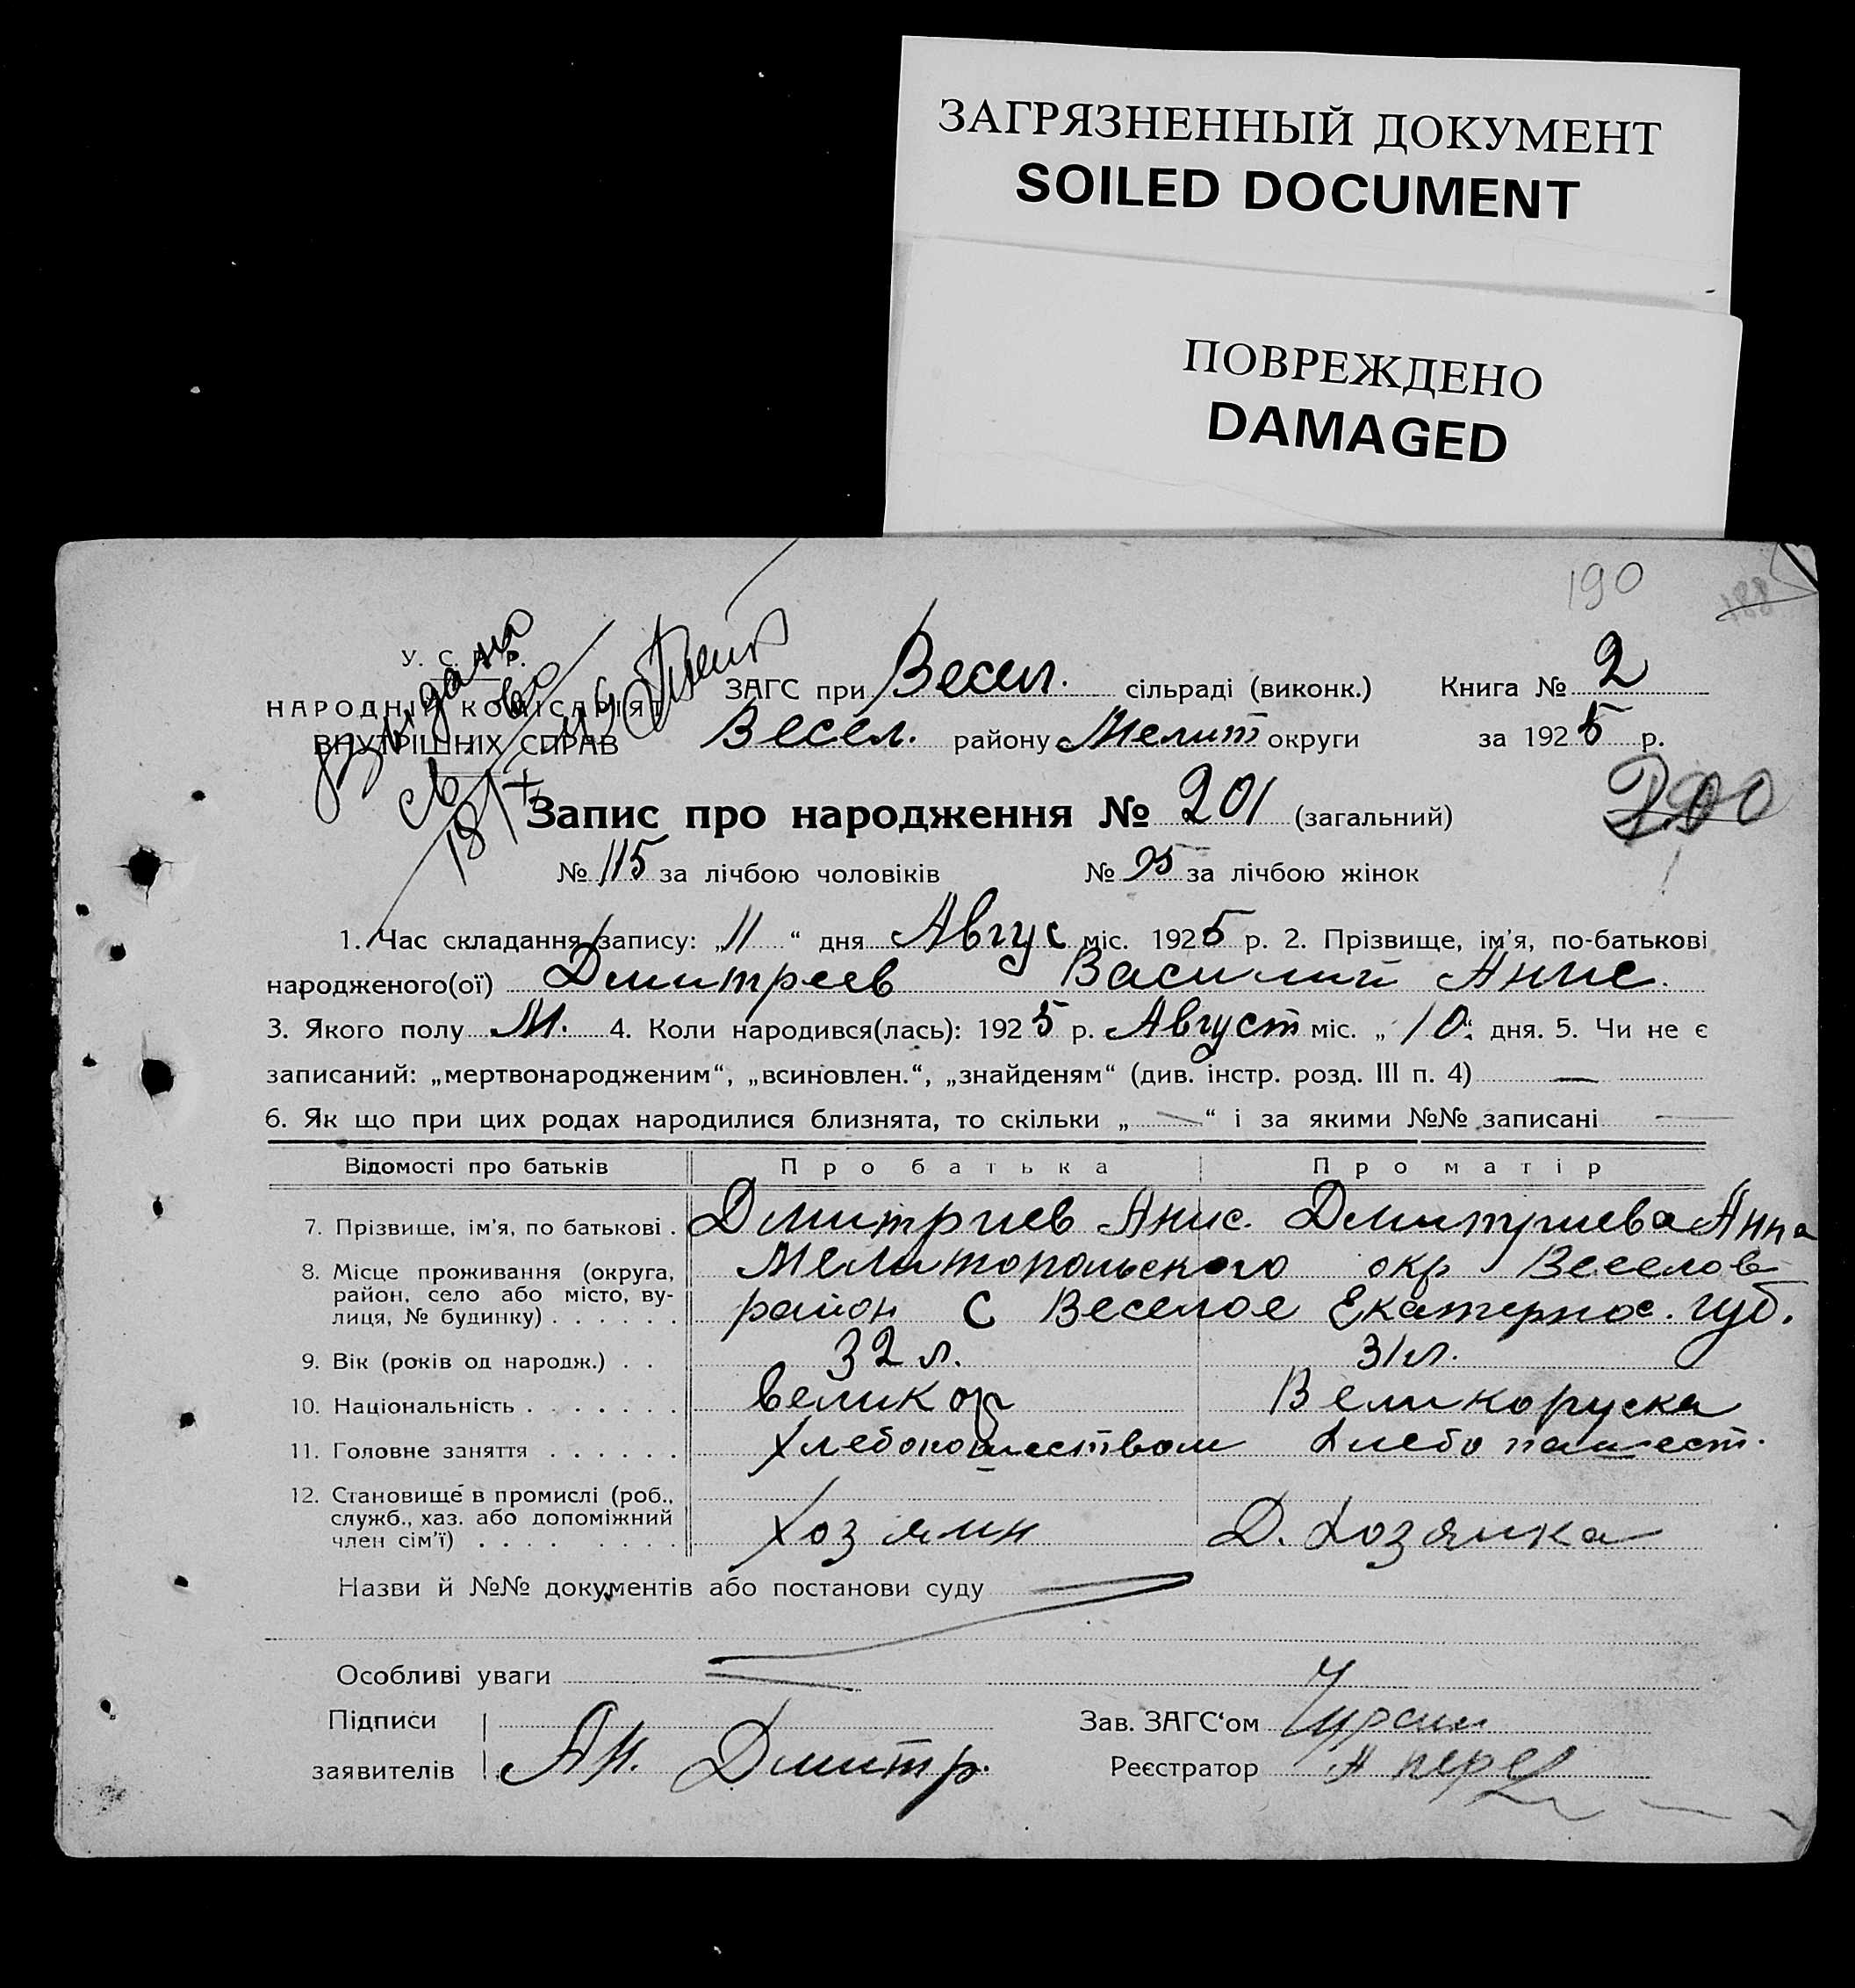 ЗАГРЯЗНЕННЫЙ ДОКУМЕНТ
SOILED DOCUMENT
ПОВРЕЖДЕНО
DAMAGED
190
У. С. Р. Р.
НАРОДНІЙ КОМІСАРІЯТ
ВНУТРІШНІХ СПРАВ
Выдано
ЗАГС при Весел. сільраді (виконк.) Книга № 2
Весел. району Мелит округи за 1925 р.
200
Запис про народження № 201 (загальний)
№ 115 за лічбою чоловіків № 95 за лічбою жінок
1. Час складання запису: „11“ дня Авгус міс. 1925 р. 2. Прізвище, ім'я, по-батькові
народженого(ої) Дмитреев Василий Анис.
3. Якого полу М. 4. Коли народився(лась): 1925 р. Август міс. „10“ дня. 5. Чи не є
записаний: „мертвонародженим“, „всиновлен.“, „знайденям“ (див. інстр. розд. III п. 4) —
6. Як що при цих родах народилися близнята, то скільки „—“ і за якими №№ записані —
Відомості про батьків Про батька Про матір
7. Прізвище, ім'я, по батькові . Дмитриев Анис. Дмитриева Анна
8. Місце проживання (округа, район, село або місто, ву- лиця, № будинку) . . . . . . Мелитопольского окр Веселов
район с Веселое Екатеринос. губ.
9. Вік (років од народж.) . . 32 л. 31 л.
10. Національність . . . . . . . великор Великоруска
11. Головне заняття . . . . . . Хлебопашеством Хлебопашест.
12. Становище в промислі (роб., служб., хаз. або допоміжний член сім'ї) . . . . . . . . Хозяин Д. Хозяика
Назви й №№ документів або постанови суду
Особливі уваги
Підписи Зав. ЗАГС'ом Чурсин
заявителів Ан. Дмитр. Реєстратор